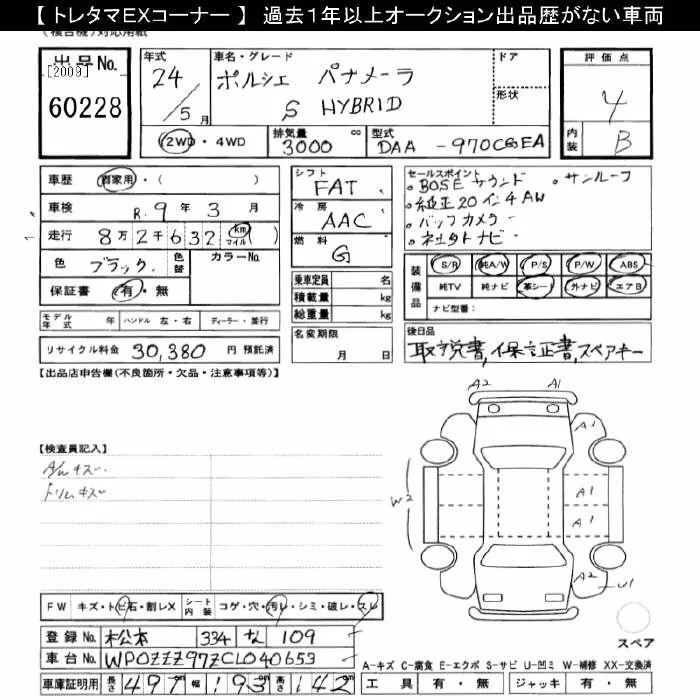 【 トレタマEXコーナー 】 過去１年以上オークション出品歴がない車両
出品No.
[2009]
60228
年式
24
／5 月
車名・グレード
ポルシェ パナメーラ
S HYBRID
ドア
形状
評価点
4
内装
B
2WD・4WD
排気量
3000 cc
型式
DAA -970CGEA
車歴 自家用・( )
車検 R.9 年 3 月
走行 8万2千632 km マイル ( )
色 ブラック 色替 カラーNo.
保証書 有・無
シフト
FAT
冷房
AAC
燃料
G
乗車定員 名
積載量 kg
総重量 kg
セールスポイント
。BOSEサウンド 。サンルーフ
。純正20インチAW
。バックカメラ
。社外ナビ
装備品
S/R 純A/W P/S P/W ABS
純TV 純ナビ 革シート 外ナビ エアB
ナビ型番：
モデル年式 年 ハンドル 左・右 ディーラー・並行
リサイクル料金 30,380 円 預託済
名変期限
月 日
後日品
取説書,保証書,スペアキー
【出品店申告欄(不良箇所・欠品・注意事項等)】
【検査員記入】
A/wキズ
トリムキズ
A2 A1
A1
W2
A1
A1
A2 U1
FW キズ・トビ石・割レX シート内装 コゲ・穴・汚レ・シミ・破レ・スレ
登録No. 松本 334 な 109
車台No. WP0ZZZ97ZCL040653
車庫証明用 長さ 497 幅 193 高さ 142
スペア
A-キズ C-腐食 E-エクボ S-サビ U-凹ミ W-補修 XX-交換済
工具 有・無 ジャッキ 有・無